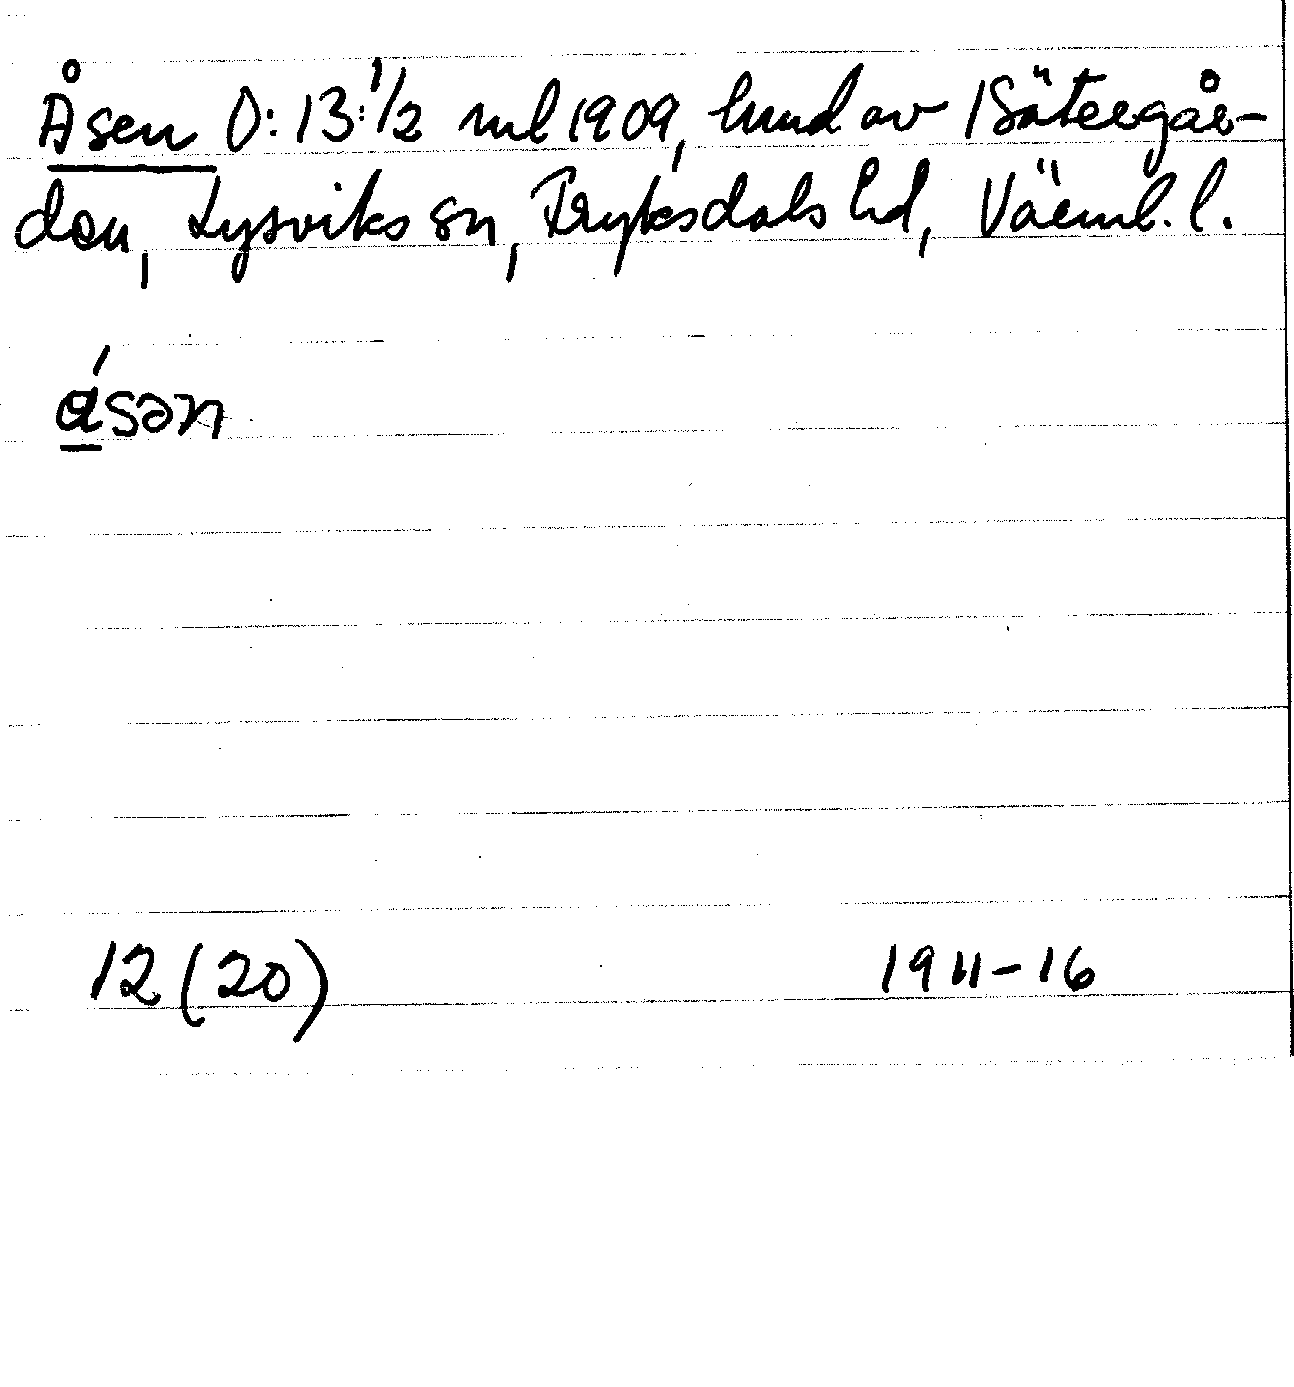 Åsen O: 13:1/2 ml 1909, hmd av 1 Sätergår-
den, Lysviks sn, Fryksdals hd, Värml. l.
ásən
12 (20) 1911-16